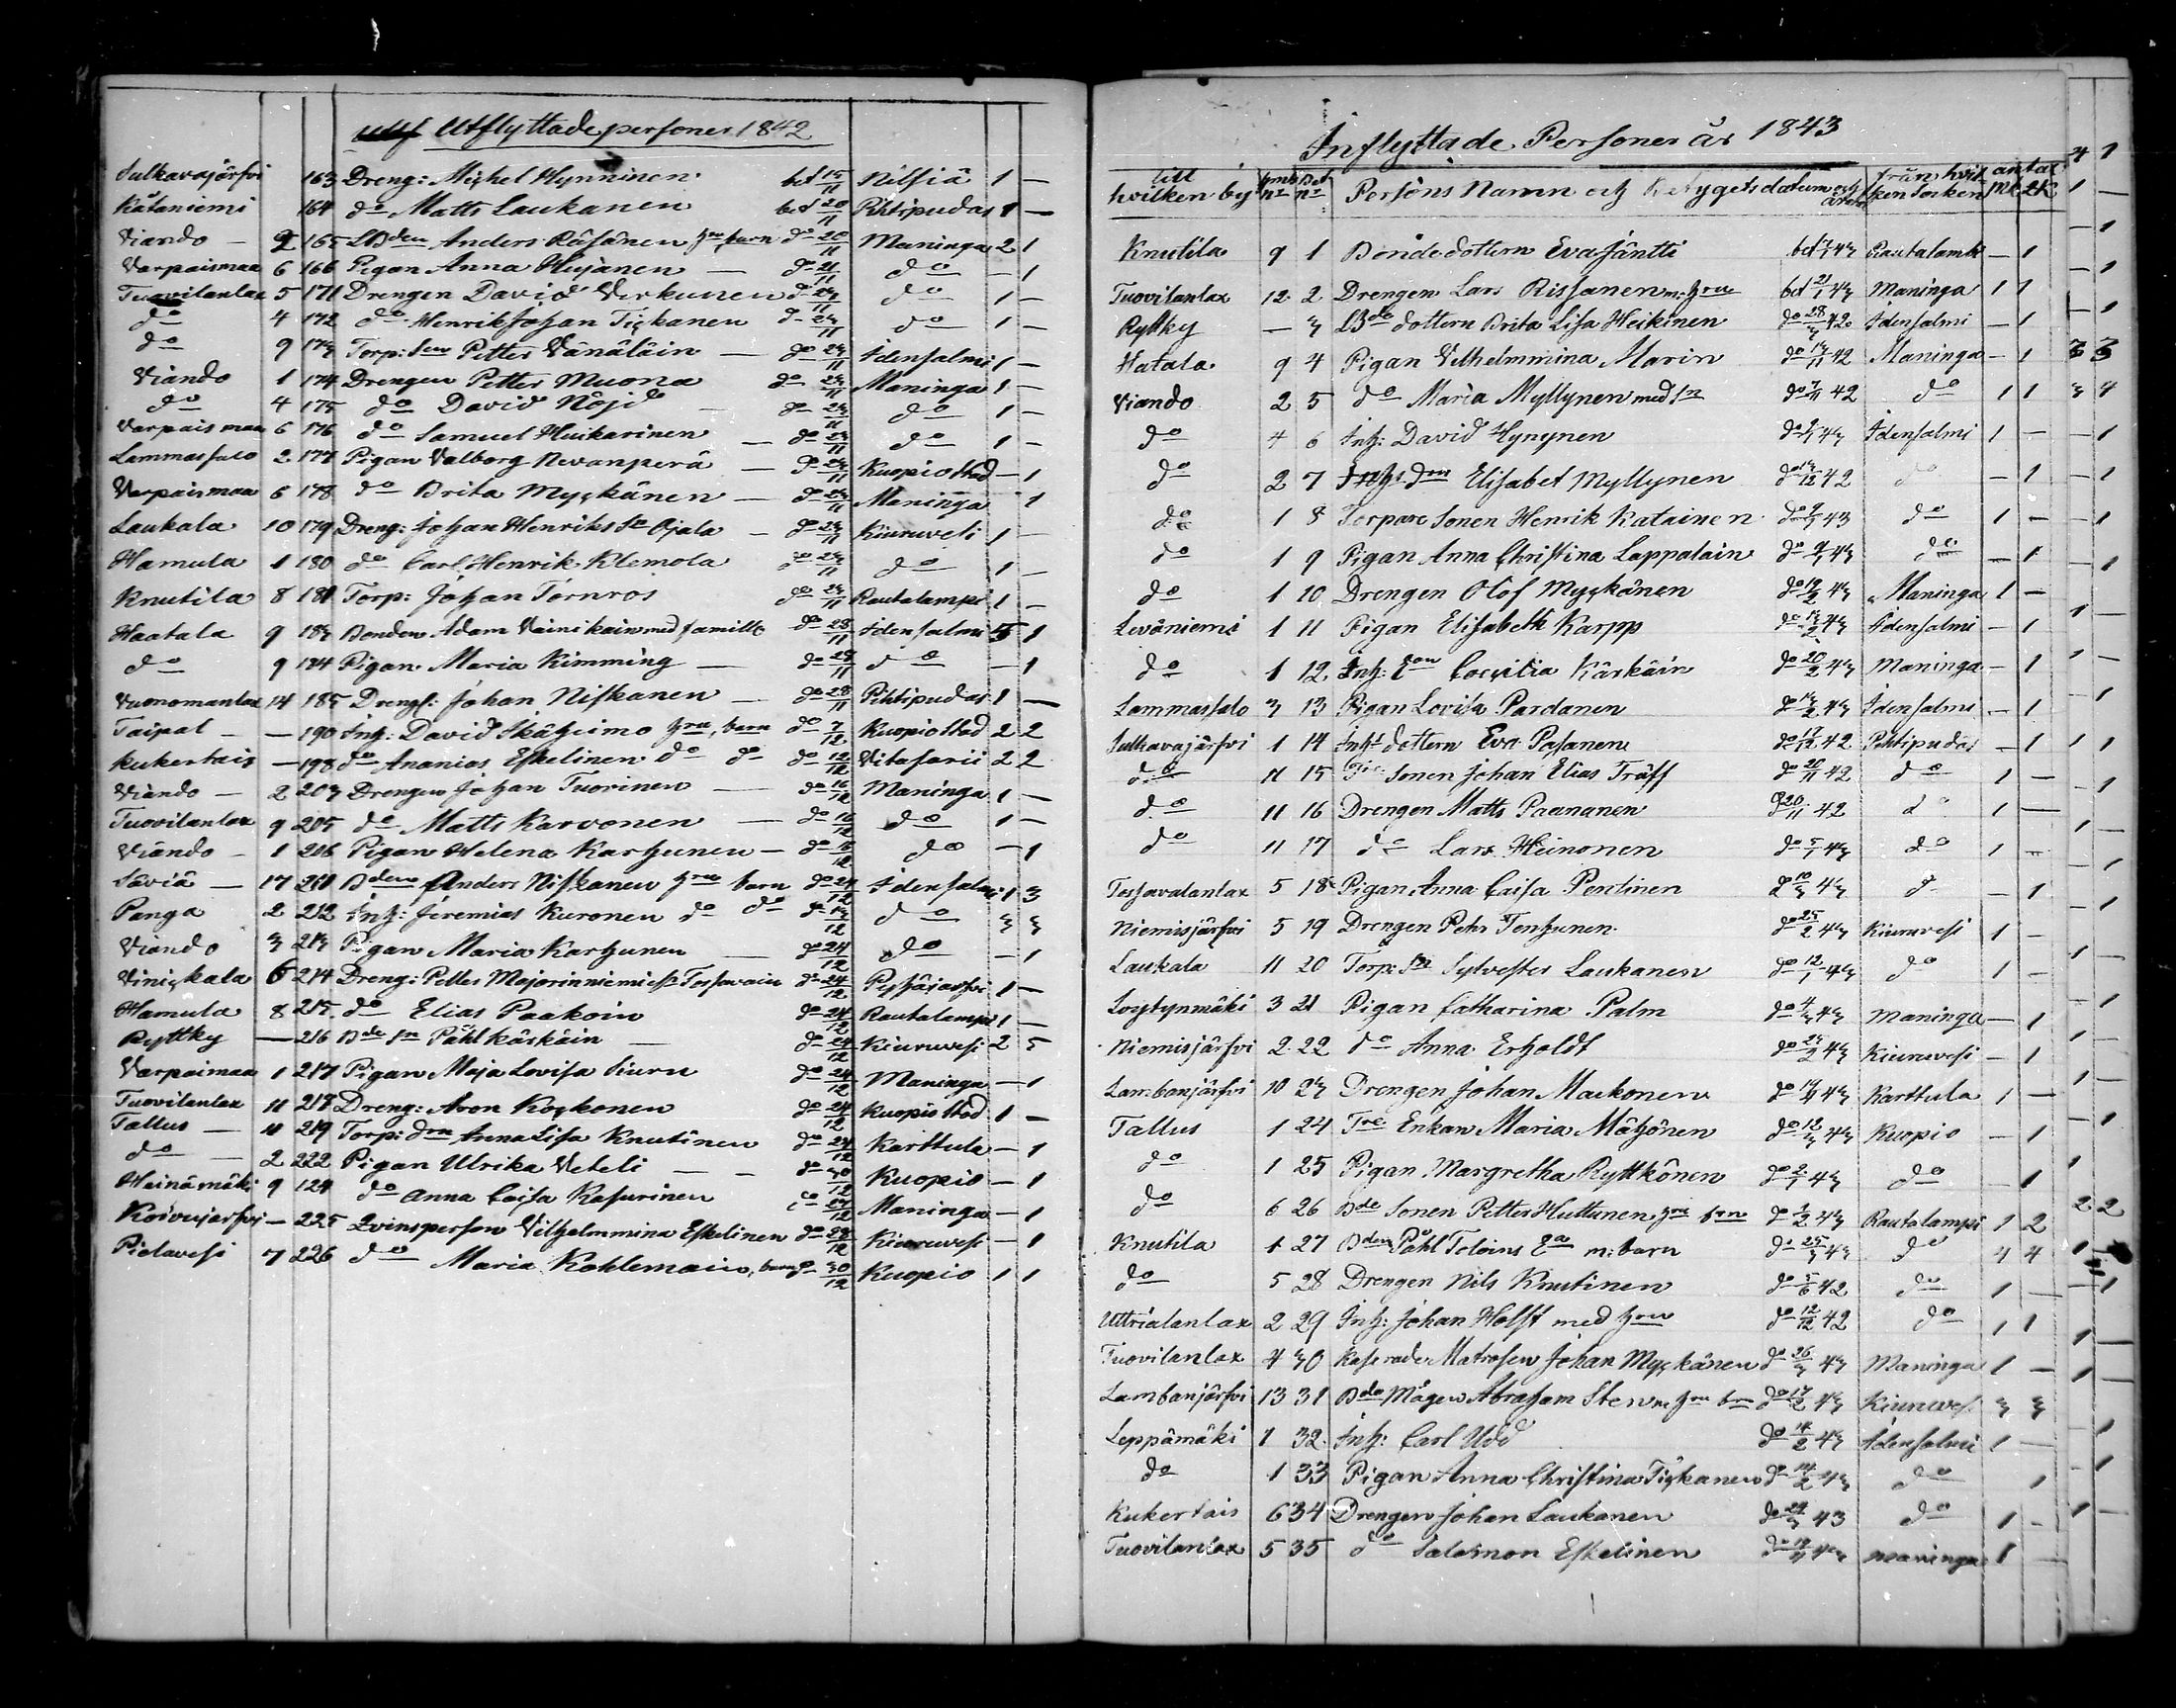 Utflyttade personer 1842
Sulkavajärfvi 163 Dreng: Michel Hynninen bet 15/11 Nilsiä 1 —
Kätaniemi 164 do Matts Laukanen bet 20/11 Pihtipudas 1 —
Viando — 2 165 LBden Anders Räsänen hru, barn do 20/11 Maninga 2 1
Varpaismaa 6 166 Pigan Anna Hujanen — do 21/11 do — 1
Tuovilanlax 5 171 Drengen David Verkunen do 23/11 do 1 —
do 4 172 do Henrik Johan Tickanen do 23/11 do 1 —
do 9 173 Torp: Sen Petter Vänäläin — do 23/11 Idensalmi 1 —
Viando 1 174 Drengen Petter Muona do 23/11 Maninga 1 —
do 4 175 do David Nöjd — do 23/11 do 1 —
Varpaismaa 6 176 do Samuel Huikarinen — do 23/11 do 1 —
Lammassalo 2 177 Pigan Valborg Nevanperä — do 23/11 Kuopio Stad — 1
Varpaismaa 6 178 do Brita Myckänen — do 23/11 Maninga 1
Laukala 10 179 Dreng: Johan Henriks Sn Ojala — do 23/11 Kiuruvesi 1 —
Hamula 1 180 do Carl Henrik Klemola do 23/11 do 1 —
Knutila 8 181 Torp: Johan Törnros do 23/11 Rautalampi 1 —
Haatala 9 183 Bonden Adam Väinikain med famille do 28/11 Idensalmi 5 1
do 9 184 Pigan Maria Kimming — do 28/11 do — 1
Vuonamanlax 14 185 Drengs: Johan Niskanen — do 28/11 Pihtipudas 1 —
Taipal — — 190 Inh: David Skätzimo hru, barn do 7/12 Kuopio Stad 2 2
Kukertais — 198 do Ananias Eskelinen do do do 12/12 Vitasarii 2 2
Viando — 2 203 Drengen Johan Tuorinen — do 16/12 Maninga 1 —
Tuovilanlax 9 205 do Matts Karvonen — do 16/12 do 1 —
Viando — 1 206 Pigan Helena Karhunen — do 16/12 do — 1
Säviä — 17 210 Bden Anders Niskanen hru barn do 24/12 Idensalmi 1 3
Panga 2 212 Inh: Jeremias Kuronen do do do 13/12 do 3 3
Viando 3 213 Pigan Maria Karhunen — do 24/12 do — 1
Vinickala 6 214 Dreng: Petter Majorinniemi Tossavain do 24/12 Pyhäjärfvi 1 —
Hamula 8 215 do Elias Paakoin do 24/12 Rautalampi 1 —
Ryttky — 216 Bde Sn Påhl Kärkäin — do 24/12 Kiuruvesi 2 5
Varpaimaa 1 217 Pigan Maja Lovisa Siurn do 24/12 Maninga — 1
Tuovilanlax 11 218 Dreng: Aron Kockonen do 24/12 Kuopio Stad 1 —
Tallus — 11 219 Torp: drn Anna Lisa Knutinen do 24/12 Karttula — 1
do — 2 222 Pigan Ulrika Veteli — — do 30/12 Kuopio — 1
Heinämäki 9 124 do Anna Caisa Kasurinen do Maninga — 1
Koivujärfvi — 225 Qvinsperson Vilhelmmina Eskelinen do 28/12 Kiuruvesi — 1
Pielavesi 7 226 do Maria Kohlemain, barn do 30/12 Kuopio 1 1
Inflyttade Personer år 1843
till hvilken by hmbs no Bet no Persons Namn och Betygets datum och årtal från hvilken Socken antal Mk 2K
Knutila 9 1 Bondedottern Eva Jäntti bet 43 Rautalambi — 1
Tuovilanlax 12 2 Drengen Lars Rissanen m: hru bet 21/1 43 Maninga 1 1
Ryttky — 3 LBde dottern Brita Lisa Heikinen do 28/3 42 Idensalmi — 1
Hatala 9 4 Pigan Vilhelmmina Marin do 13/11 42 Maninga — 1
Viando 2 5 do Maria Myllynen med Sn do 7/11 42 do 1 1
do 4 6 Inh: David Hynynen do 43 Idensalmi 1 —
do 2 7 Inhs drn Elisabet Myllynen do 13/12 42 do — 1
do 1 8 Torpare Sonen Henrik Katainen do 43 do 1 —
do 1 9 Pigan Anna Christina Lappalain do 43 do — 1
do 1 10 Drengen Olof Myckänen do 19/2 43 Maninga 1 —
Leväniemi 1 11 Pigan Elisabeth Karpp do 13/2 43 Idensalmi — 1
do 1 12 Inh: Coecilia Kärkäin do 20/2 43 Maninga — 1
Lammassalo 3 13 Pigan Lovisa Pardanen do 13/2 43 Idensalmi — 1
Sulkavajärfvi 1 14 Inhs dottern Eva Pasanen do 17/12 42 Pihtipudas — 1
do 11 15 Sonen Johan Elias Träff do 20/11 42 do 1 —
do 11 16 Drengen Matts Paananen do 20/11 42 do 1 —
do 11 17 do Lars Heinonen do 5/1 43 do 1 —
Tossavalanlax 5 18 Pigan Anna Caisa Pentinen do 10/3 43 do — 1
Niemisjärfvi 5 19 Drengen Pehr Tenhunen do 25/2 43 Kiuruvesi 1 —
Laukala 11 20 Torp: Sn Sylvester Laukanen do 12/1 43 do 1 —
Löytynmäki 3 21 Pigan Catharina Palm do 4/3 43 Maninga — 1
Niemisjärfvi 2 22 do Anna Erholdt do 23/2 43 Kiuruvesi — 1
Lambanjärfvi 10 23 Drengen Johan Mackonen do 43 Karttula 1 —
Tallus 1 24 Tre Enkan Maria Mähönen do 12/3 43 Kuopio — 1
do 1 25 Pigan Margretha Ryttkönen do 2/1 43 do — 1
do 6 26 Bde Sonen Petter Huttunen hru brn do 43 Rautalampi 1 2
Knutila 1 27 Bden Påhl Toloins m: barn do 25/3 43 do 4 4
do 5 28 Drengen Nils Knutinen do 5/6 42 do 1 —
Uttrialanlax 2 29 Inh: Johan Holst med hru do 12/12 42 do 1 1
Tuovilanlax 4 30 Kasserade Matrosen Johan Myckänen do 26/3 43 Maninga 1 —
Lambanjärfvi 13 31 Bde Mågen Abraham Sten m hru brn do 17/2 43 Kiuruves 3 3
Leppämäki 1 32 Inh: Carl Udd do 14/2 43 Idensalmi 1 —
do 1 33 Pigan Anna Christina Tickanen do 14/2 43 do 1
Kukertais 6 34 Drengen Johan Laukanen do 43 do 1 —
Tuovilanlax 5 35 do Salomon Eskelinen do 43 Maninga 1 —